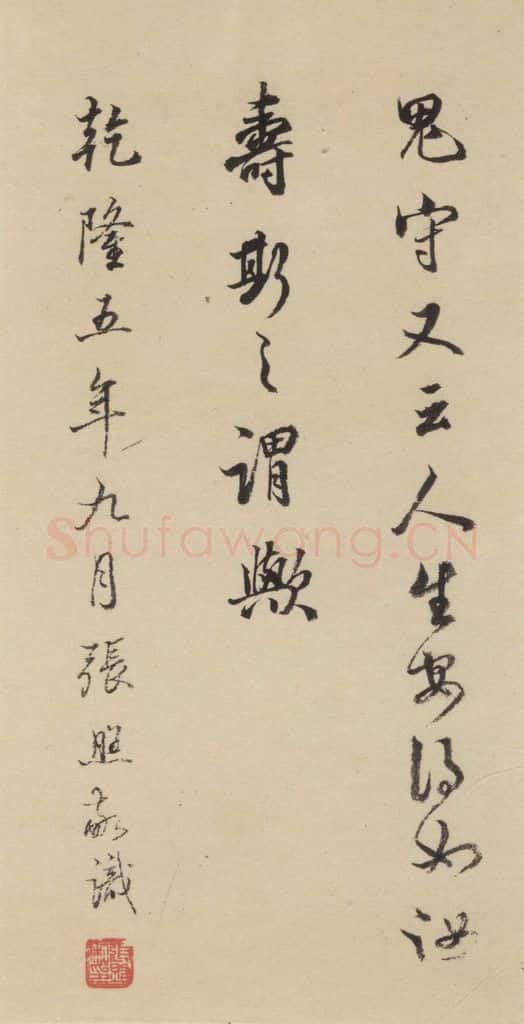 鬼守又云人生安得如汝
壽斯之謂歟
乾隆五年九月張照敬識
Shufawang.CN